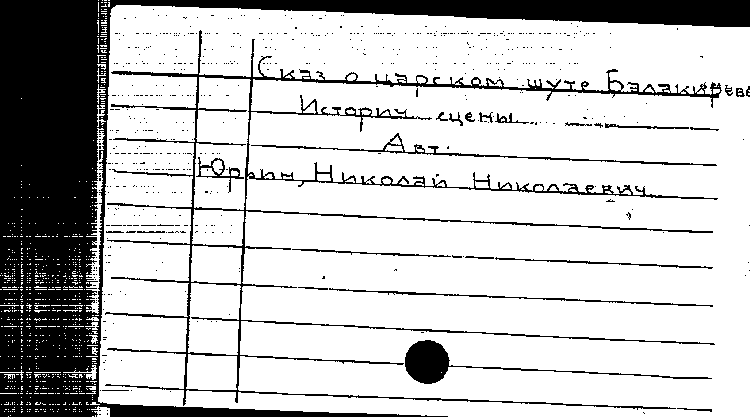 Сказ о царском шуте Балакиреве
Историч. сцены
Авт.
Юрьин, Николай Николаевич